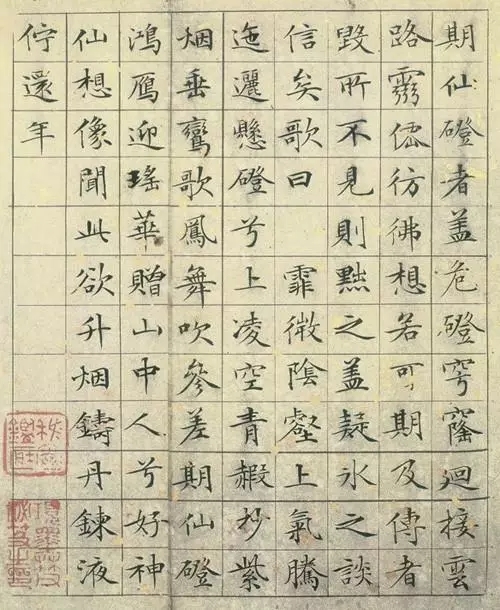 期仙磴者盖危磴穹窿迴接雲
路靈僊彷彿想若可期及傳者
毀所不見則黜之盖疑氷之談
信矣歌曰 霏微陰壑上氣騰
迤邐懸磴兮上凌空青赮杪紫
烟垂鸞歌鳳舞吹參差期仙磴
鴻鴈迎瑤華贈山中人兮好神
仙想像聞此欲升烟鑄丹鍊液
佇還年